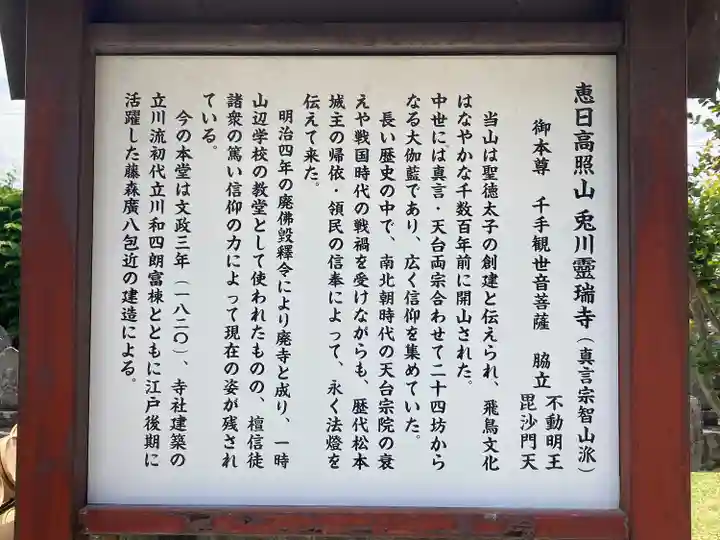 恵日高照山 兎川靈瑞寺（真言宗智山派）
御本尊 千手観世音菩薩 脇立 不動明王
毘沙門天
当山は聖徳太子の創建と伝えられ、飛鳥文化
はなやかな千数百年前に開山された。
中世には真言・天台両宗合わせて二十四坊から
なる大伽藍であり、広く信仰を集めていた。
長い歴史の中で、南北朝時代の天台宗院の衰
えや戦国時代の戦禍を受けながらも、歴代松本
城主の帰依・領民の信奉によって、永く法燈を
伝えて来た。
明治四年の廃佛毀釋令により廃寺と成り、一時
山辺学校の教堂として使われたものの、檀信徒
諸衆の篤い信仰の力によって現在の姿が残され
ている。
今の本堂は文政三年（一八二〇）、寺社建築の
立川流初代立川和四朗富棟とともに江戸後期に
活躍した藤森廣八包近の建造による。